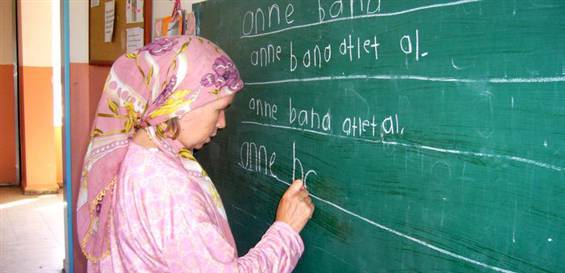 anne bana
anne bana atlet al.
anne bana atlet al.
anne b